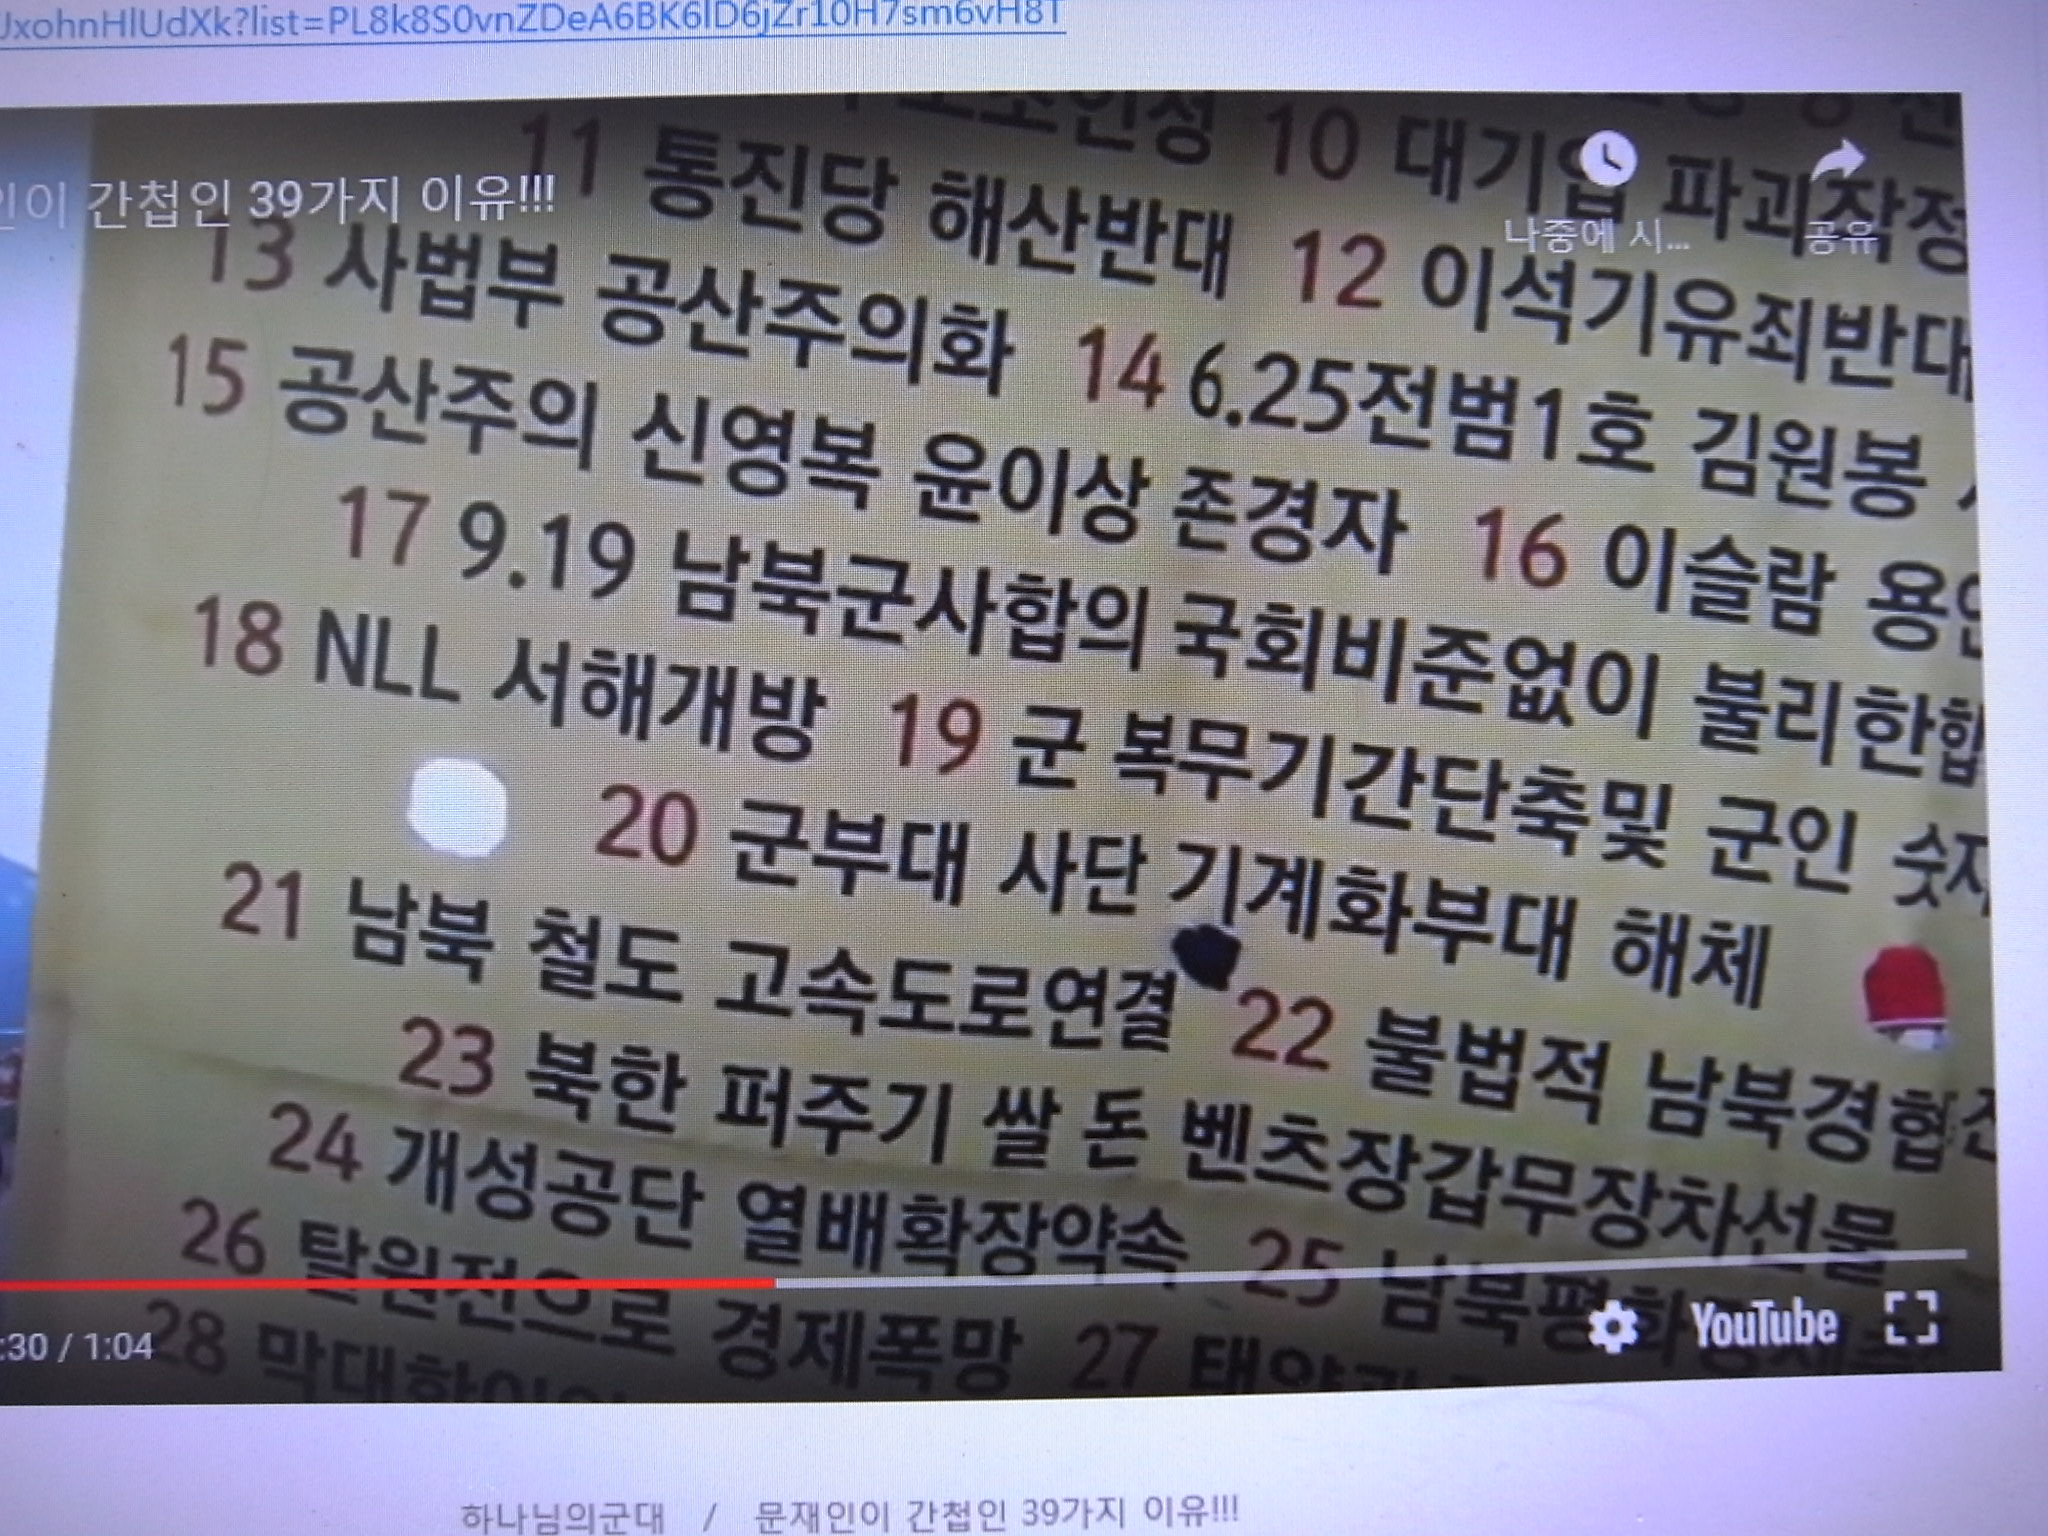 JxohnHlUdXk?list=PL8k8S0vnZDeA6BK6lD6jZr10H7sm6vH8T
인이 간첩인 39가지 이유!!!
나중에 시...
공유
10 대기업 파괴작정
11 통진당 해산반대 12 이석기유죄반대
13 사법부 공산주의화 14 6.25전범1호 김원봉
15 공산주의 신영복 윤이상 존경자 16 이슬람
17 9.19 남북군사합의 국회비준없이 불리한합
18 NLL 서해개방 19 군 복무기간단축및 군인 숫자
20 군부대 사단 기계화부대 해체
21 남북 철도 고속도로연결 22 불법적 남북경협
23 북한 퍼주기 쌀 돈 벤츠장갑무장차선물
24 개성공단 열배확장약속 25
26 탈원전으로 경제폭망 27
28
:30 / 1:04
YouTube
하나님의군대 / 문재인이 간첩인 39가지 이유!!!